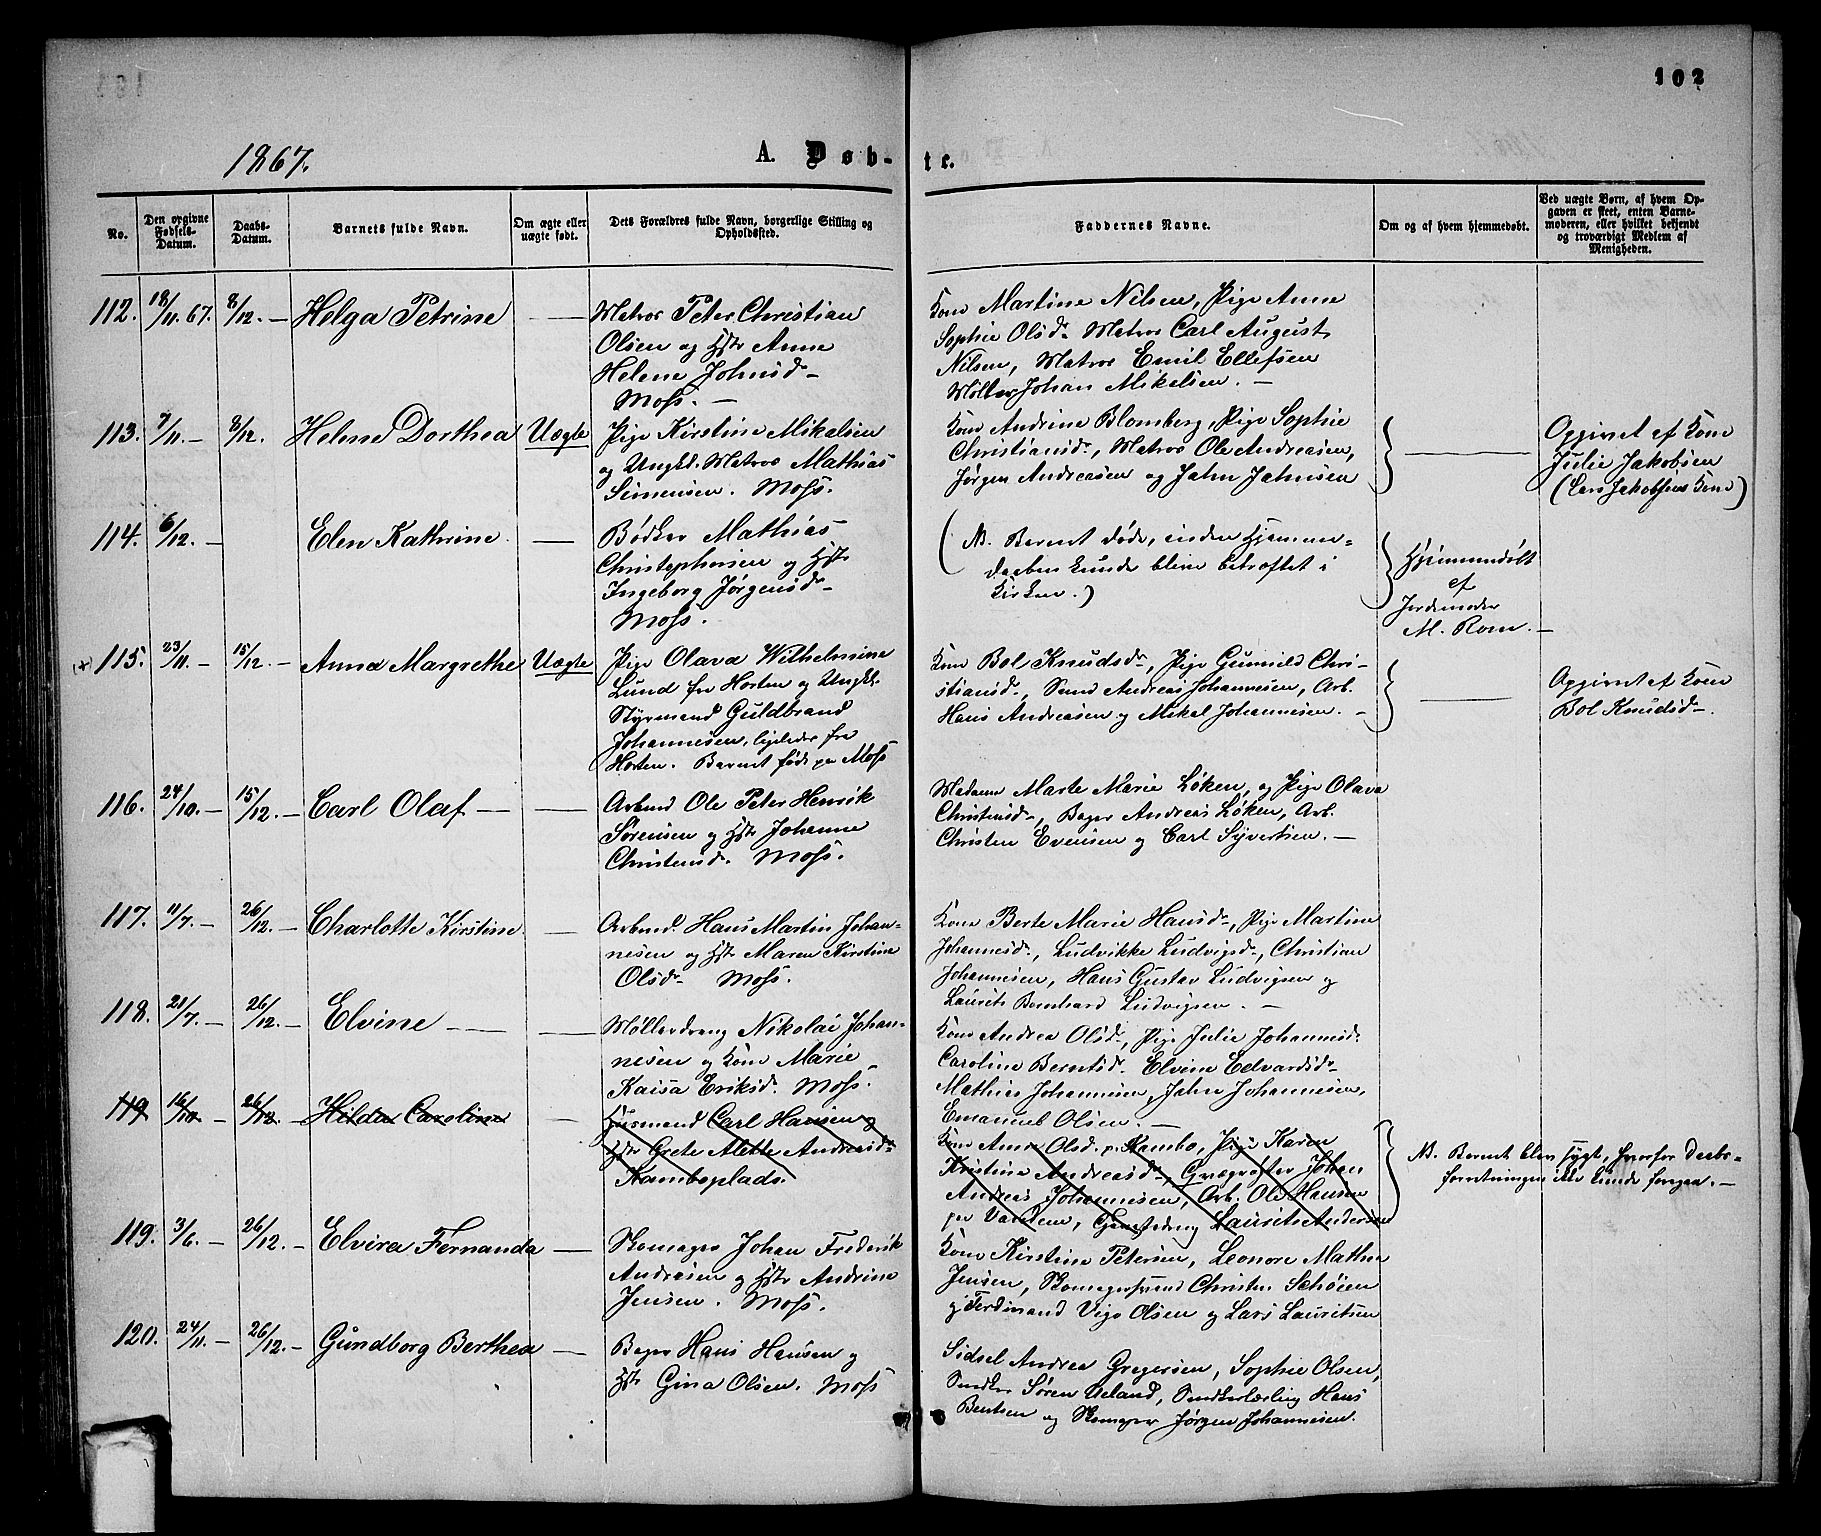 102
1867.
A. Døb-
te.
No.
Den opgivne Fødsels-Datum.
Daabs-Datum.
Barnets fulde Navn.
Om ægte eller uægte født.
Dets Forældres fulde Navn, borgerlige Stilling og Opholdssted.
Faddernes Navne.
Om og af hvem hjemmedøbt.
Ved uægte Børn, af hvem Opgaven er skeet, enten Barnemoderen, eller hvilket bekjendt og troværdigt Medlem af Menigheden.
112. 18/11.67. 8/12. — Helga Petrine —
Matros Peter Christian
Olsen og Hstr Anne
Helene Johnsd—
Moss. —
Kone Martine Nilsen, Pige Anne
Sophie Olsdr. Matros Carl August
Nilsen, Matros Emil Ellefsen
Møller Johan Mikelsen. —
113. 7/11.— 8/12. Helene Dorthea Uægte
Pige Kirstine Mikelsen
og Ungkl. Matros Mathias
Simensen. Moss.
Kone Andrine Blomberg, Pige Sophie
Christiansdr, Matros Ole Andreasen,
Jørgen Andreasen og Jahn Jahnsen
Opgivet af Kone
Julie Jakobsen
(Lars Jakobsens Kone)
114. 6/12. — Elen Kathrine. —
Bødker Mathias
Christophersen og Hstr
Ingeborg Jørgensdr—
Moss.
(NB. Barnet døde, inden Hjemme-
daaben kunde blive bekræftet i
Kirken.)
Hjemmedøbt
af
Jordemoder
M. Rom. —
(x) 115. 23/11. — 15/12. — Anna Margrethe Uægte
Pige Olava Wilhelmine
Lund fra Horten og Ungkl.
Styrmand Guldbrand
Johannesen, ligeledes fra
Horten. Barnet født paa Moss
Kone Bol Knudsdr, Pige Gunnild Chri-
stiansdr, Smed Andreas Johannesen, Arb.
Hans Andreasen og Mikal Johannesen. —
Opgivet af Kone
Bol Knudsd—.
116. 24/10. — 15/12. — Carl Olaf — —
Arbmd Ole Peter Henrik
Sørensen og Hstr Johanne
Christensd. Moss.
Madame Marte Marie Løken, og Pige Olava
Christensdr, Bager Andreas Løken, Arb.
Christen Evensen og Carl Syvertsen. —
117. 11/7. — 26/12. — Charlotte Kirstine. —
Arbmd. Hans Martin Johan-
nesen og Hstr Maren Kirstine
Olsdr Moss.
Kone Berte Marie Hansdr, Pige Martine
Johannesdr, Ludvikke Ludvigsdr, Christian
Johannesen, Hans Gustav Ludvigsen og
Laurits Bernhard Ludvigsen. —
118. 21/7. — 26/12. — Elvine — —
Møllerdreng Nikolai Johan-
nesen og Kone Marie
Kaisa Eriksd. Moss.
Kone Andrea Olsdr, Pige Julie Johannesdr.
Caroline Berntsdr. Elvine Edvardsdr
Mathias Johannesen, Jahn Johannesen,
Emanuel Olsen. —
119 16/10 26/12. Hilda Caroline —
Husmand Carl Hansen og
Hstr Grete Alette Andreasdr
Kamboplads.
Kone Anne Olsd. p. Kambo, Pige Karen
Kristine Andreasdr, Johan
Andreas Johannesen, Arb. Ole Hansen
paa Vardem, Laurits Andersen
NB. Barnet blev sygt, hvorfor Daabs-
forretningen ikke kunde foregaa. —
119. 3/6. — 26/12. — Elvira Fernanda —
Skomager Johan Frederik
Andresen og Hstr Andrine
Jensen. Moss.
Kone Kirstine Petersen, Leonore Mathea
Jensen, Skomagersvend Christen Schøien
og Ferdinand Vigo Olsen og Lars Lauritsen
120. 24/11. — 26/12. — Gundborg Berthea —
Bager Hans Hansen og
Hstr Gina Olsen. Moss
Sidsel Andrea Gregersen, Sophie Olsen,
Snedker Søren Ueland, Snedkerlærling Hans
Bentsen og Skomager Jørgen Johannesen.